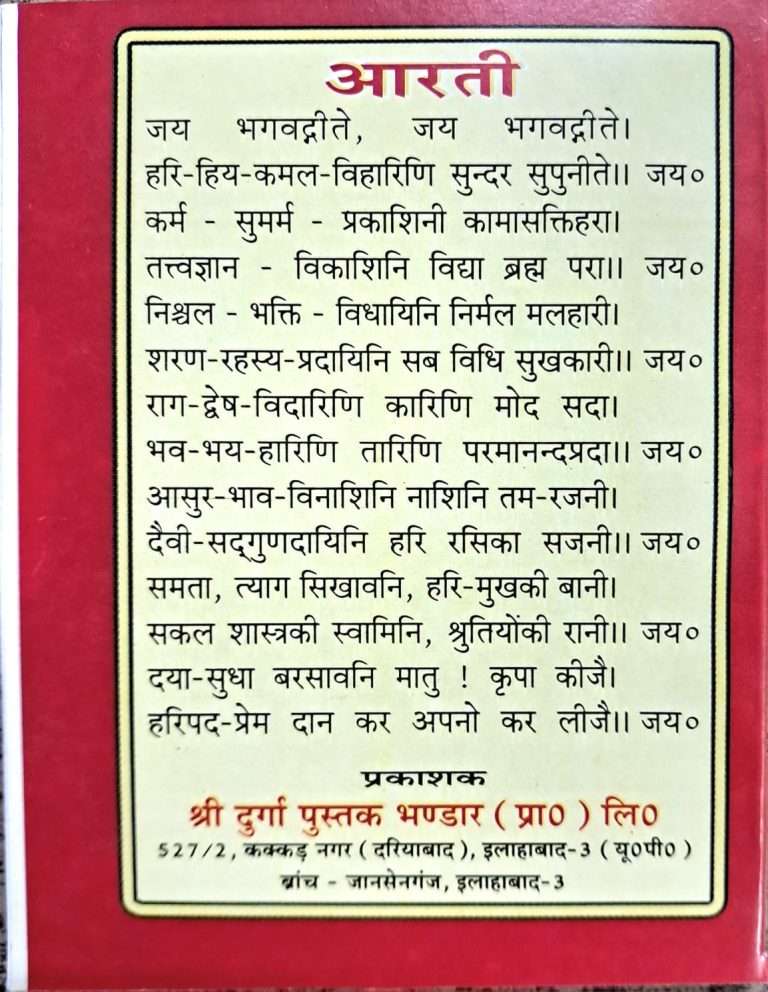 आरती
जय भगवद्गीते, जय भगवद्गीते।
हरि-हिय-कमल-विहारिणि सुन्दर सुपुनीते॥ जय०
कर्म - सुमर्म - प्रकाशिनी कामासक्तिहरा।
तत्त्वज्ञान - विकाशिनि विद्या ब्रह्म परा॥ जय०
निश्चल - भक्ति - विधायिनि निर्मल मलहारी।
शरण-रहस्य-प्रदायिनि सब विधि सुखकारी॥ जय०
राग-द्वेष-विदारिणि कारिणि मोद सदा।
भव-भय-हारिणि तारिणि परमानन्दप्रदा॥ जय०
आसुर-भाव-विनाशिनि नाशिनि तम-रजनी।
दैवी-सद्‌गुणदायिनि हरि रसिका सजनी॥ जय०
समता, त्याग सिखावनि, हरि-मुखकी बानी।
सकल शास्त्रकी स्वामिनि, श्रुतियोंकी रानी॥ जय०
दया-सुधा बरसावनि मातु ! कृपा कीजै।
हरिपद-प्रेम दान कर अपनो कर लीजै॥ जय०
प्रकाशक
श्री दुर्गा पुस्तक भण्डार ( प्रा0 ) लि0
527/2, कक्कड़ नगर ( दरियाबाद ), इलाहाबाद-3 ( यू0पी0 )
ब्रांच - जानसेनगंज, इलाहाबाद-3